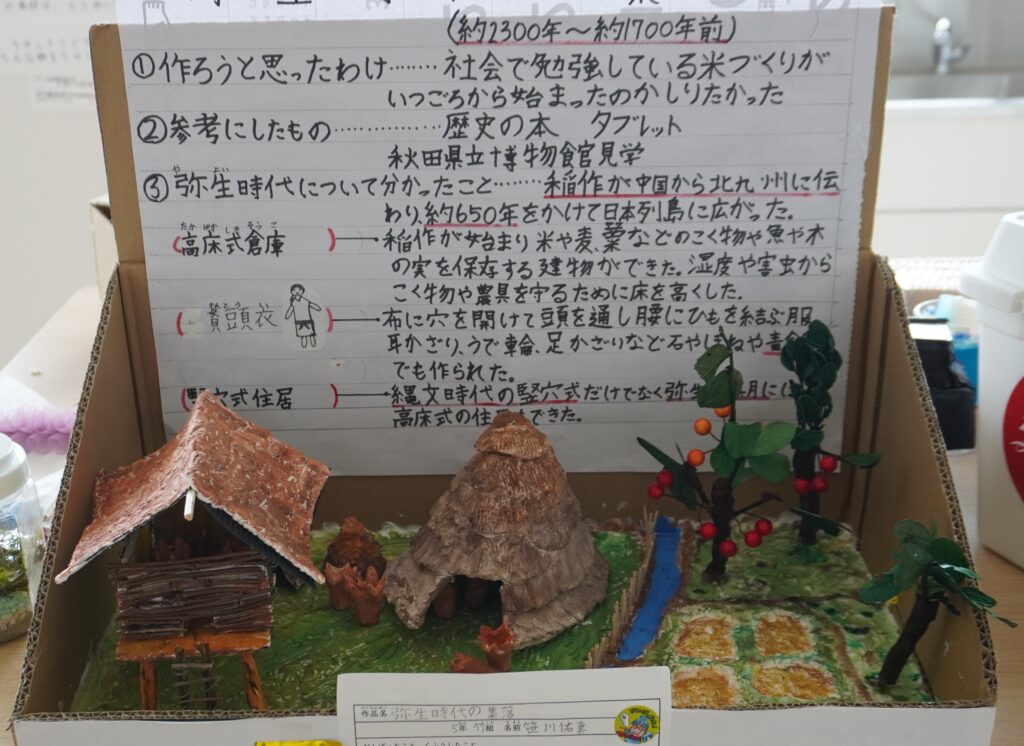 (約2300年～約1700年前)
①作ろうと思ったわけ‥‥‥‥社会で勉強している米づくりが
いつごろから始まったのかしりたかった
②参考にしたもの‥‥‥‥‥‥歴史の本 タブレット
秋田県立博物館見学
③弥生時代について分かったこと‥‥‥‥稲作が中国から北九州に伝
わり、約650年をかけて日本列島に広がった。
(高床式倉庫)
稲作が始まり米や麦、粟などのこく物や魚や木
の実を保存する建物ができた。湿度や害虫から
こく物や農具を守るために床を高くした。
(貫頭衣)
布に穴を開けて頭を通し腰にひもを結ぶ服
耳かざり、うで輪、足かざりなど石やほねや青
でも作られた。
竪穴式住居)
縄文時代の竪穴式だけでなく弥生
高床式の住 できた。
作品名 弥生時代の集落
5年 竹組 名前 笹川佑